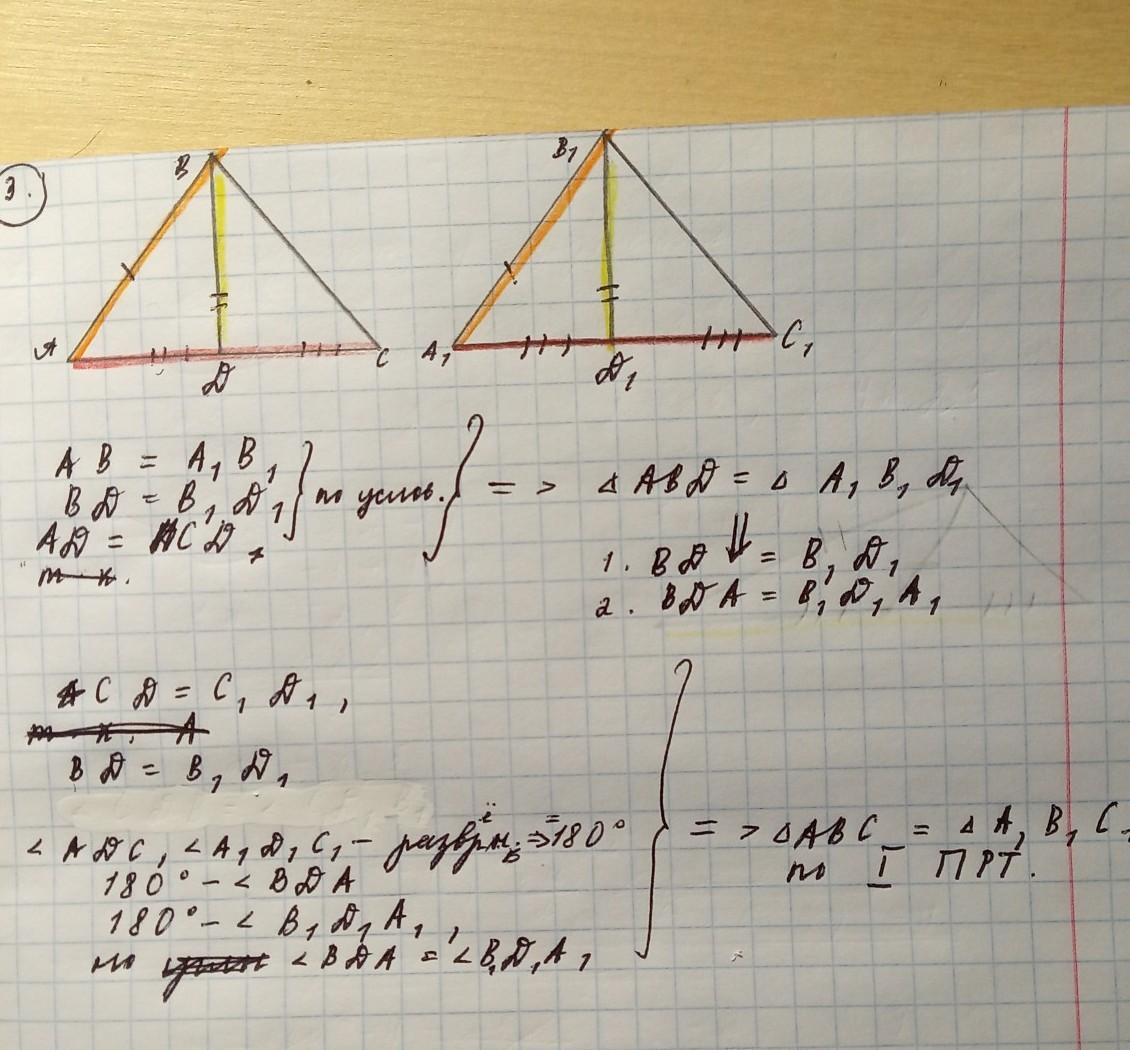 3.
B
B₁
A
D
C
A₁
D₁
C₁
AB = A₁B₁
BD = B₁D₁ } по услов. } => △ ABD = △ A₁B₁D₁
AD = CD,
т.к.
⇓
1. BD = B₁D₁
2. BDA = B₁D₁A₁
CD = C₁D₁,
т.к. A
BD = B₁D₁
∠ADC, ∠A₁D₁C₁ – => 180°
180° – ∠BDA
180° – ∠B₁D₁A₁,
но ∠BDA = ∠B₁D₁A₁
} => △ABC = △A₁B₁C₁
по I ПРТ.